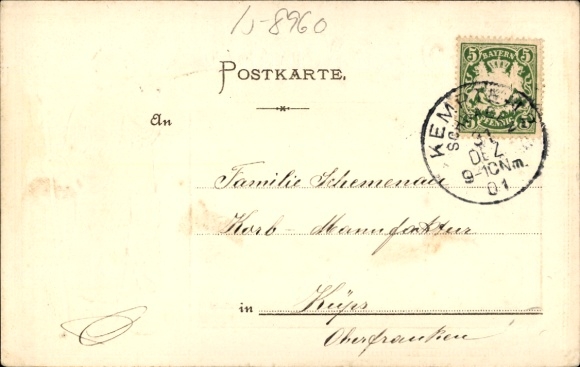 10-8960
5 BAYERN 5
PFENNIG
POSTKARTE.
KEMPTEN
31
DEZ
9-10Nm.
01
An
Familie Schemenau
Korb-Manufaktur
in Küps
Oberfranken